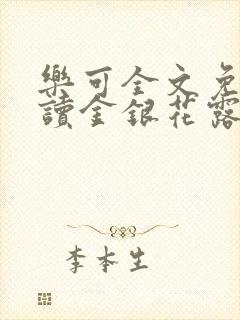 樂可全文免
讀金銀花露
李本生